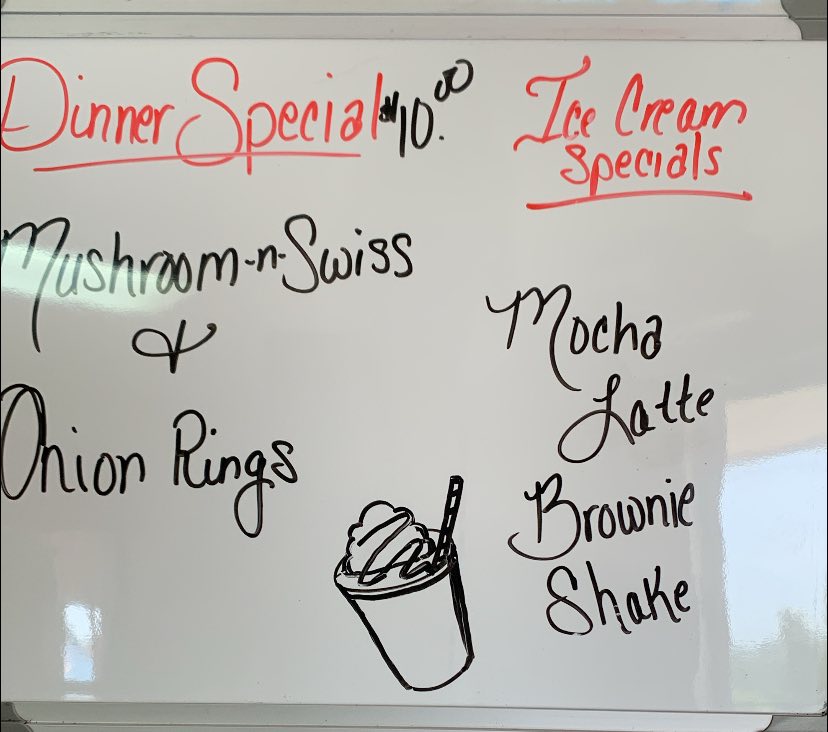 Dinner Special $10.00
Mushroom-n-Swiss
&
Onion Rings
Ice Cream
Specials
Mocha
Latte
Brownie
Shake